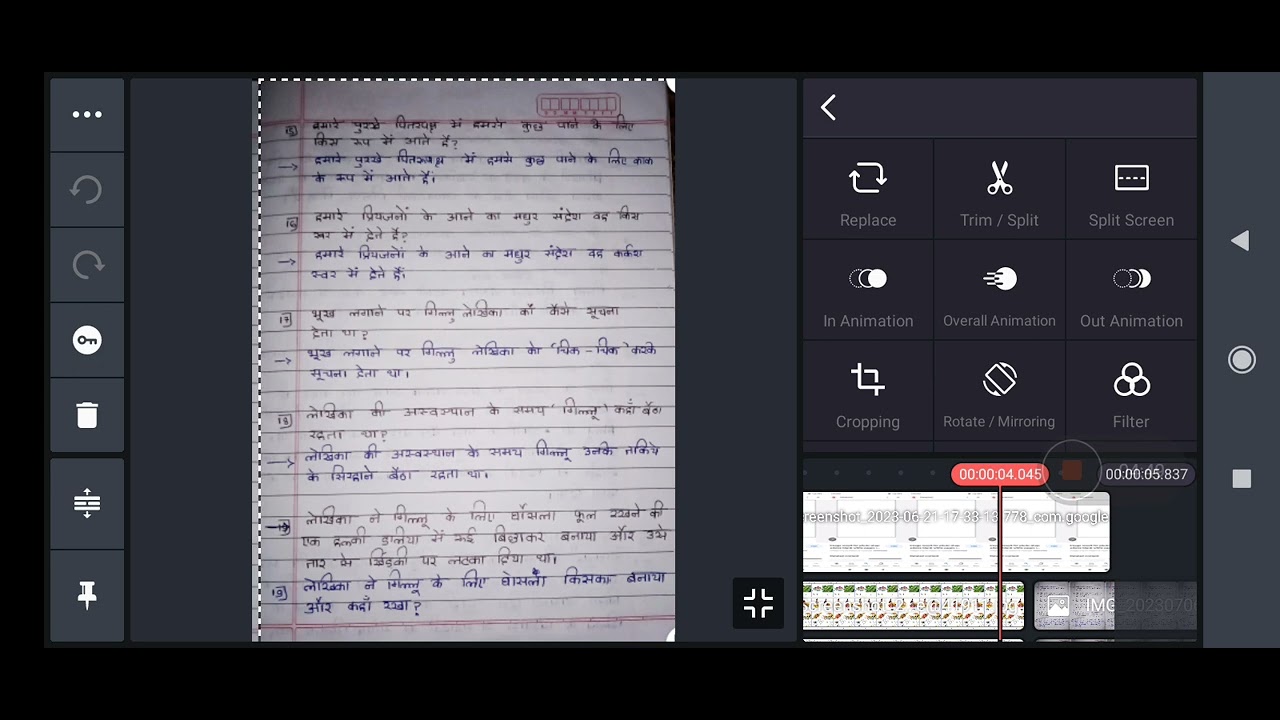 15] हमारे पुरखे पितरपक्ष में हमसे कुछ पाने के लिए
किस रूप में आते हैं?
→ हमारे पुरखे पितरपक्ष में हमसे कुछ पाने के लिए काक
के रूप में आते हैं।
16] हमारे प्रियजनों के आने का मधुर संदेश वह किस
स्वर में देते हैं?
→ हमारे प्रियजनों के आने का मधुर संदेश वह कर्कश
स्वर में देते हैं।
17] भूख लगाने पर गिल्लू लेखिका को कैसे सूचना
देता था?
→ भूख लगाने पर गिल्लू लेखिका को 'चिक-चिक' करके
सूचना देता था।
18] लेखिका की अस्वस्थान के समय 'गिल्लू' कहाँ बैठा
रहता था?
→ लेखिका की अस्वस्थान के समय गिल्लू उनके तकिये
के सिरहाने बैठा रहता था।
लेखिका ने गिल्लू के लिए घोंसला फूल रखने की
एक हलकी डलिया में रुई बिछाकर बनाया और उसे
तार से खिड़की पर लटका दिया था।
19] लेखिका ने गिल्लू के लिए घोंसला किसका बनाया
और कहाँ रखा?
Replace
Trim / Split
Split Screen
In Animation
Overall Animation
Out Animation
Cropping
Rotate / Mirroring
Filter
00:00:04.045
00:00:05.837
reenshot_2023-06-21-17-33-13-778_com.google
IMG_2023070